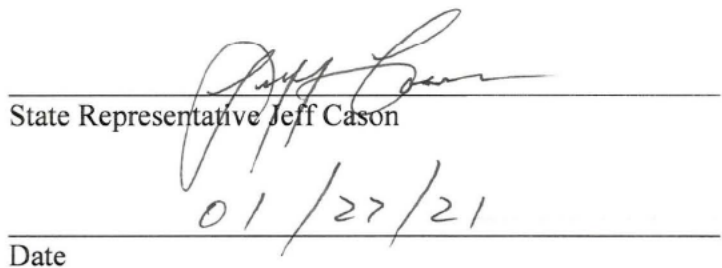 Jeff Cason
State Representative Jeff Cason
01/27/21
Date